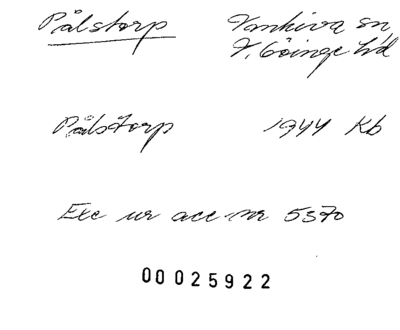 Pålstorp Vankiva sn
V. Göinge hd
Pålstorp 1944 Kb
Exc ur acc nr 5370
00 025922